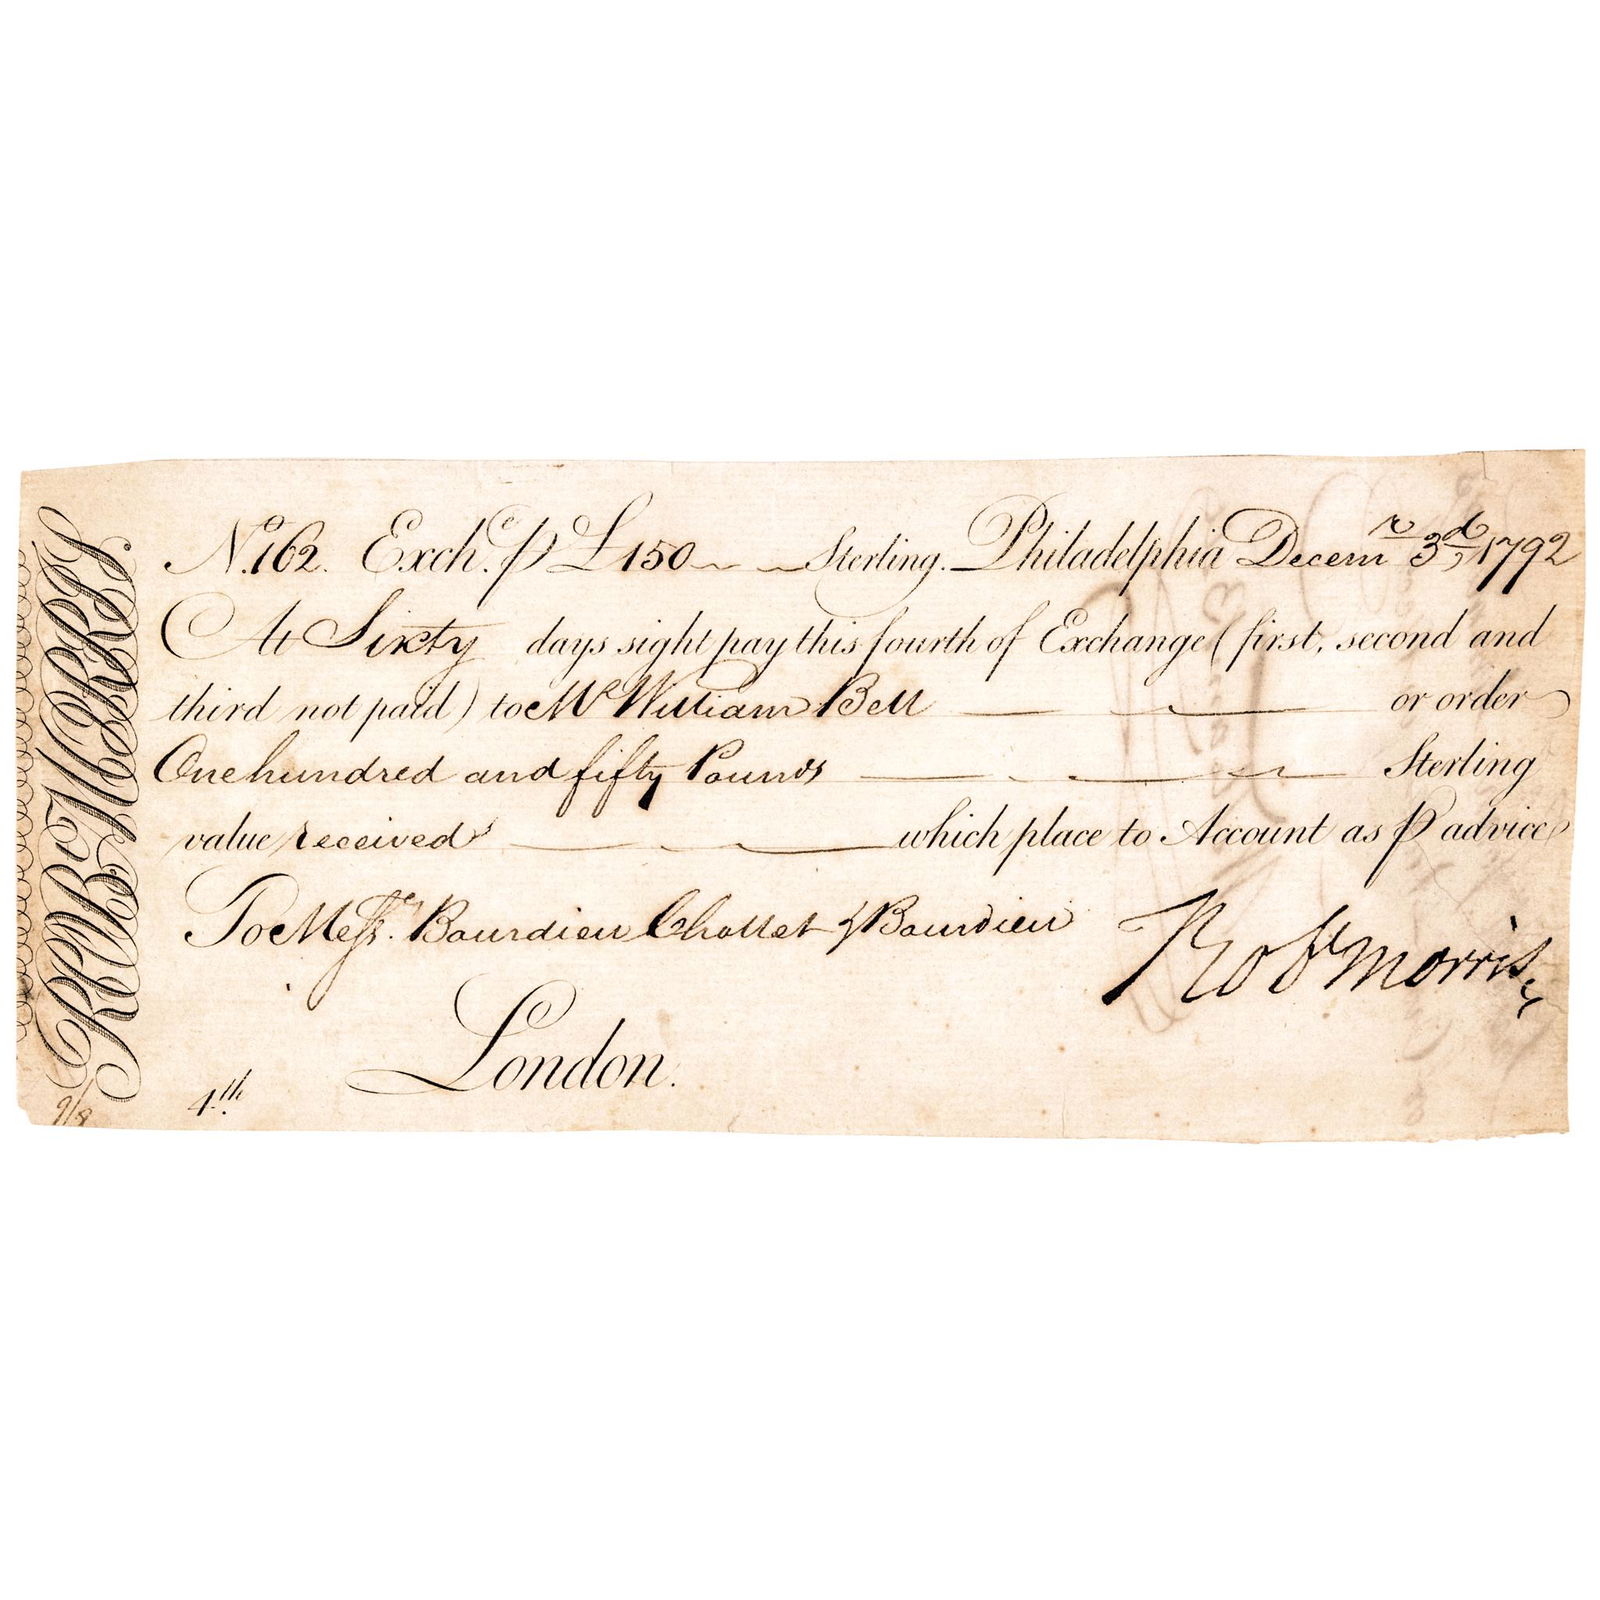 ROBT. MORRIS.
No. 162. Exche. ⅌ £150 Sterling. Philadelphia Decemr 3d, 1792
At Sixty days sight pay this fourth of Exchange (first, second and
third not paid) to Mr William Bell or order
One hundred and fifty Pounds Sterling
value received which place to Account as ⅌ advice
To Messrs. Bourdieu Chollet & Bourdieu
Robt Morris
London.
4th.